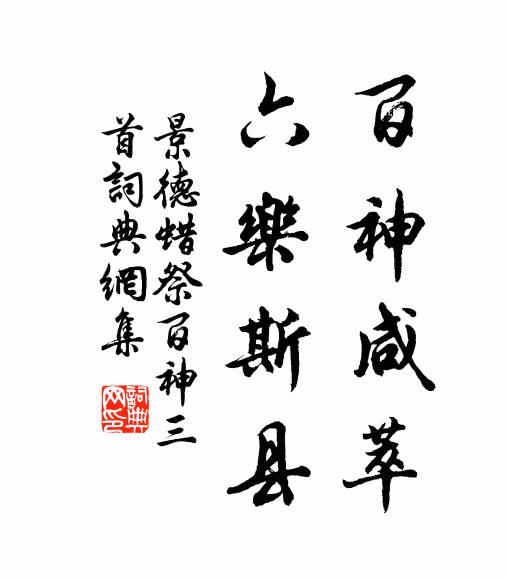 百神咸萃
六樂斯县
景德蜡祭百神三
首詞典網集
詞典
网印